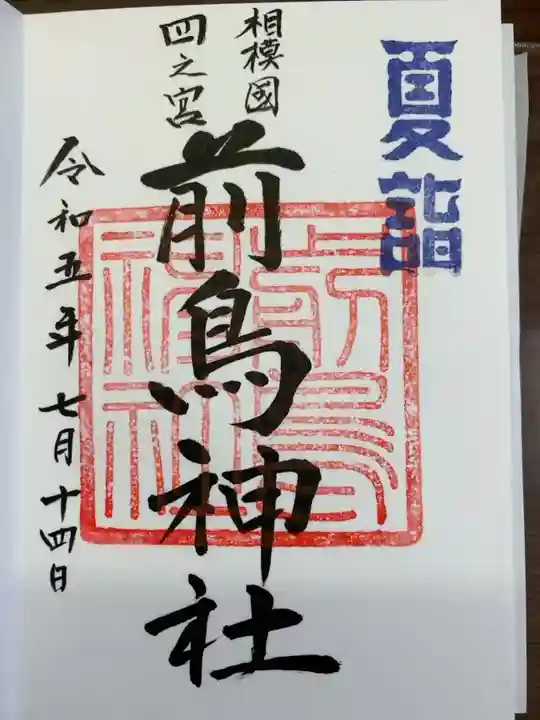 夏詣
相模國
四之宮
前鳥神社
令和五年七月十四日
前鳥神社